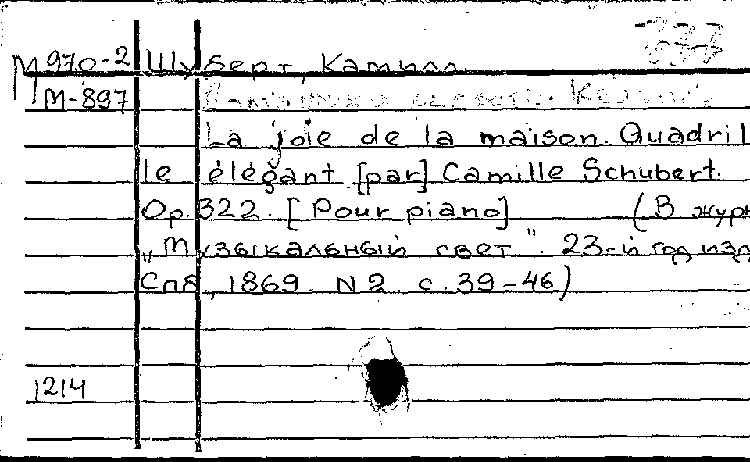 М970-2 Шуберт, Камилл
М-897
La joie de la maison. Quadril
le élégant [par] Camille Schubert.
Op. 322. [Pour piano] (В журн
„Музыкальный свет". 23-й год изд
Спб, 1869. N 2 с. 39-46)
1214